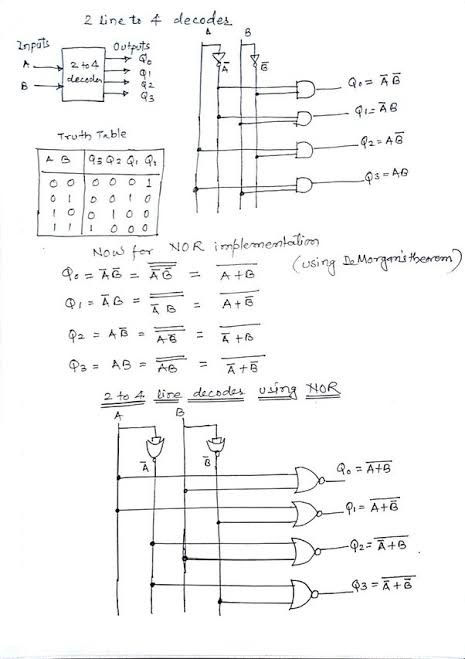 2 line to 4 decoders
Inputs
Outputs
A
B
2 to 4
decoder
Q0
Q1
Q2
Q3
A
B
A̅
B̅
Q0 = A̅ B̅
Q1 = A̅ B
Q2 = A B̅
Q3 = AB
Truth Table
A B Q3 Q2 Q1 Q0
0 0 0 0 0 1
0 1 0 0 1 0
1 0 0 1 0 0
1 1 1 0 0 0
Now for NOR implementation
(using DeMorgan's theorem)
Q0 = A̅ B̅ = \overline{\overline{A̅ B̅}} = \overline{A+B}
Q1 = A̅ B = \overline{\overline{A̅ B}} = \overline{A+B̅}
Q2 = A B̅ = \overline{\overline{A B̅}} = \overline{A̅+B}
Q3 = AB = \overline{\overline{AB}} = \overline{A̅+B̅}
2 to 4 line decoders using NOR
A
B
A̅
B̅
Q0 = \overline{A+B}
Q1 = \overline{A+B̅}
Q2 = \overline{A̅+B}
Q3 = \overline{A̅+B̅}